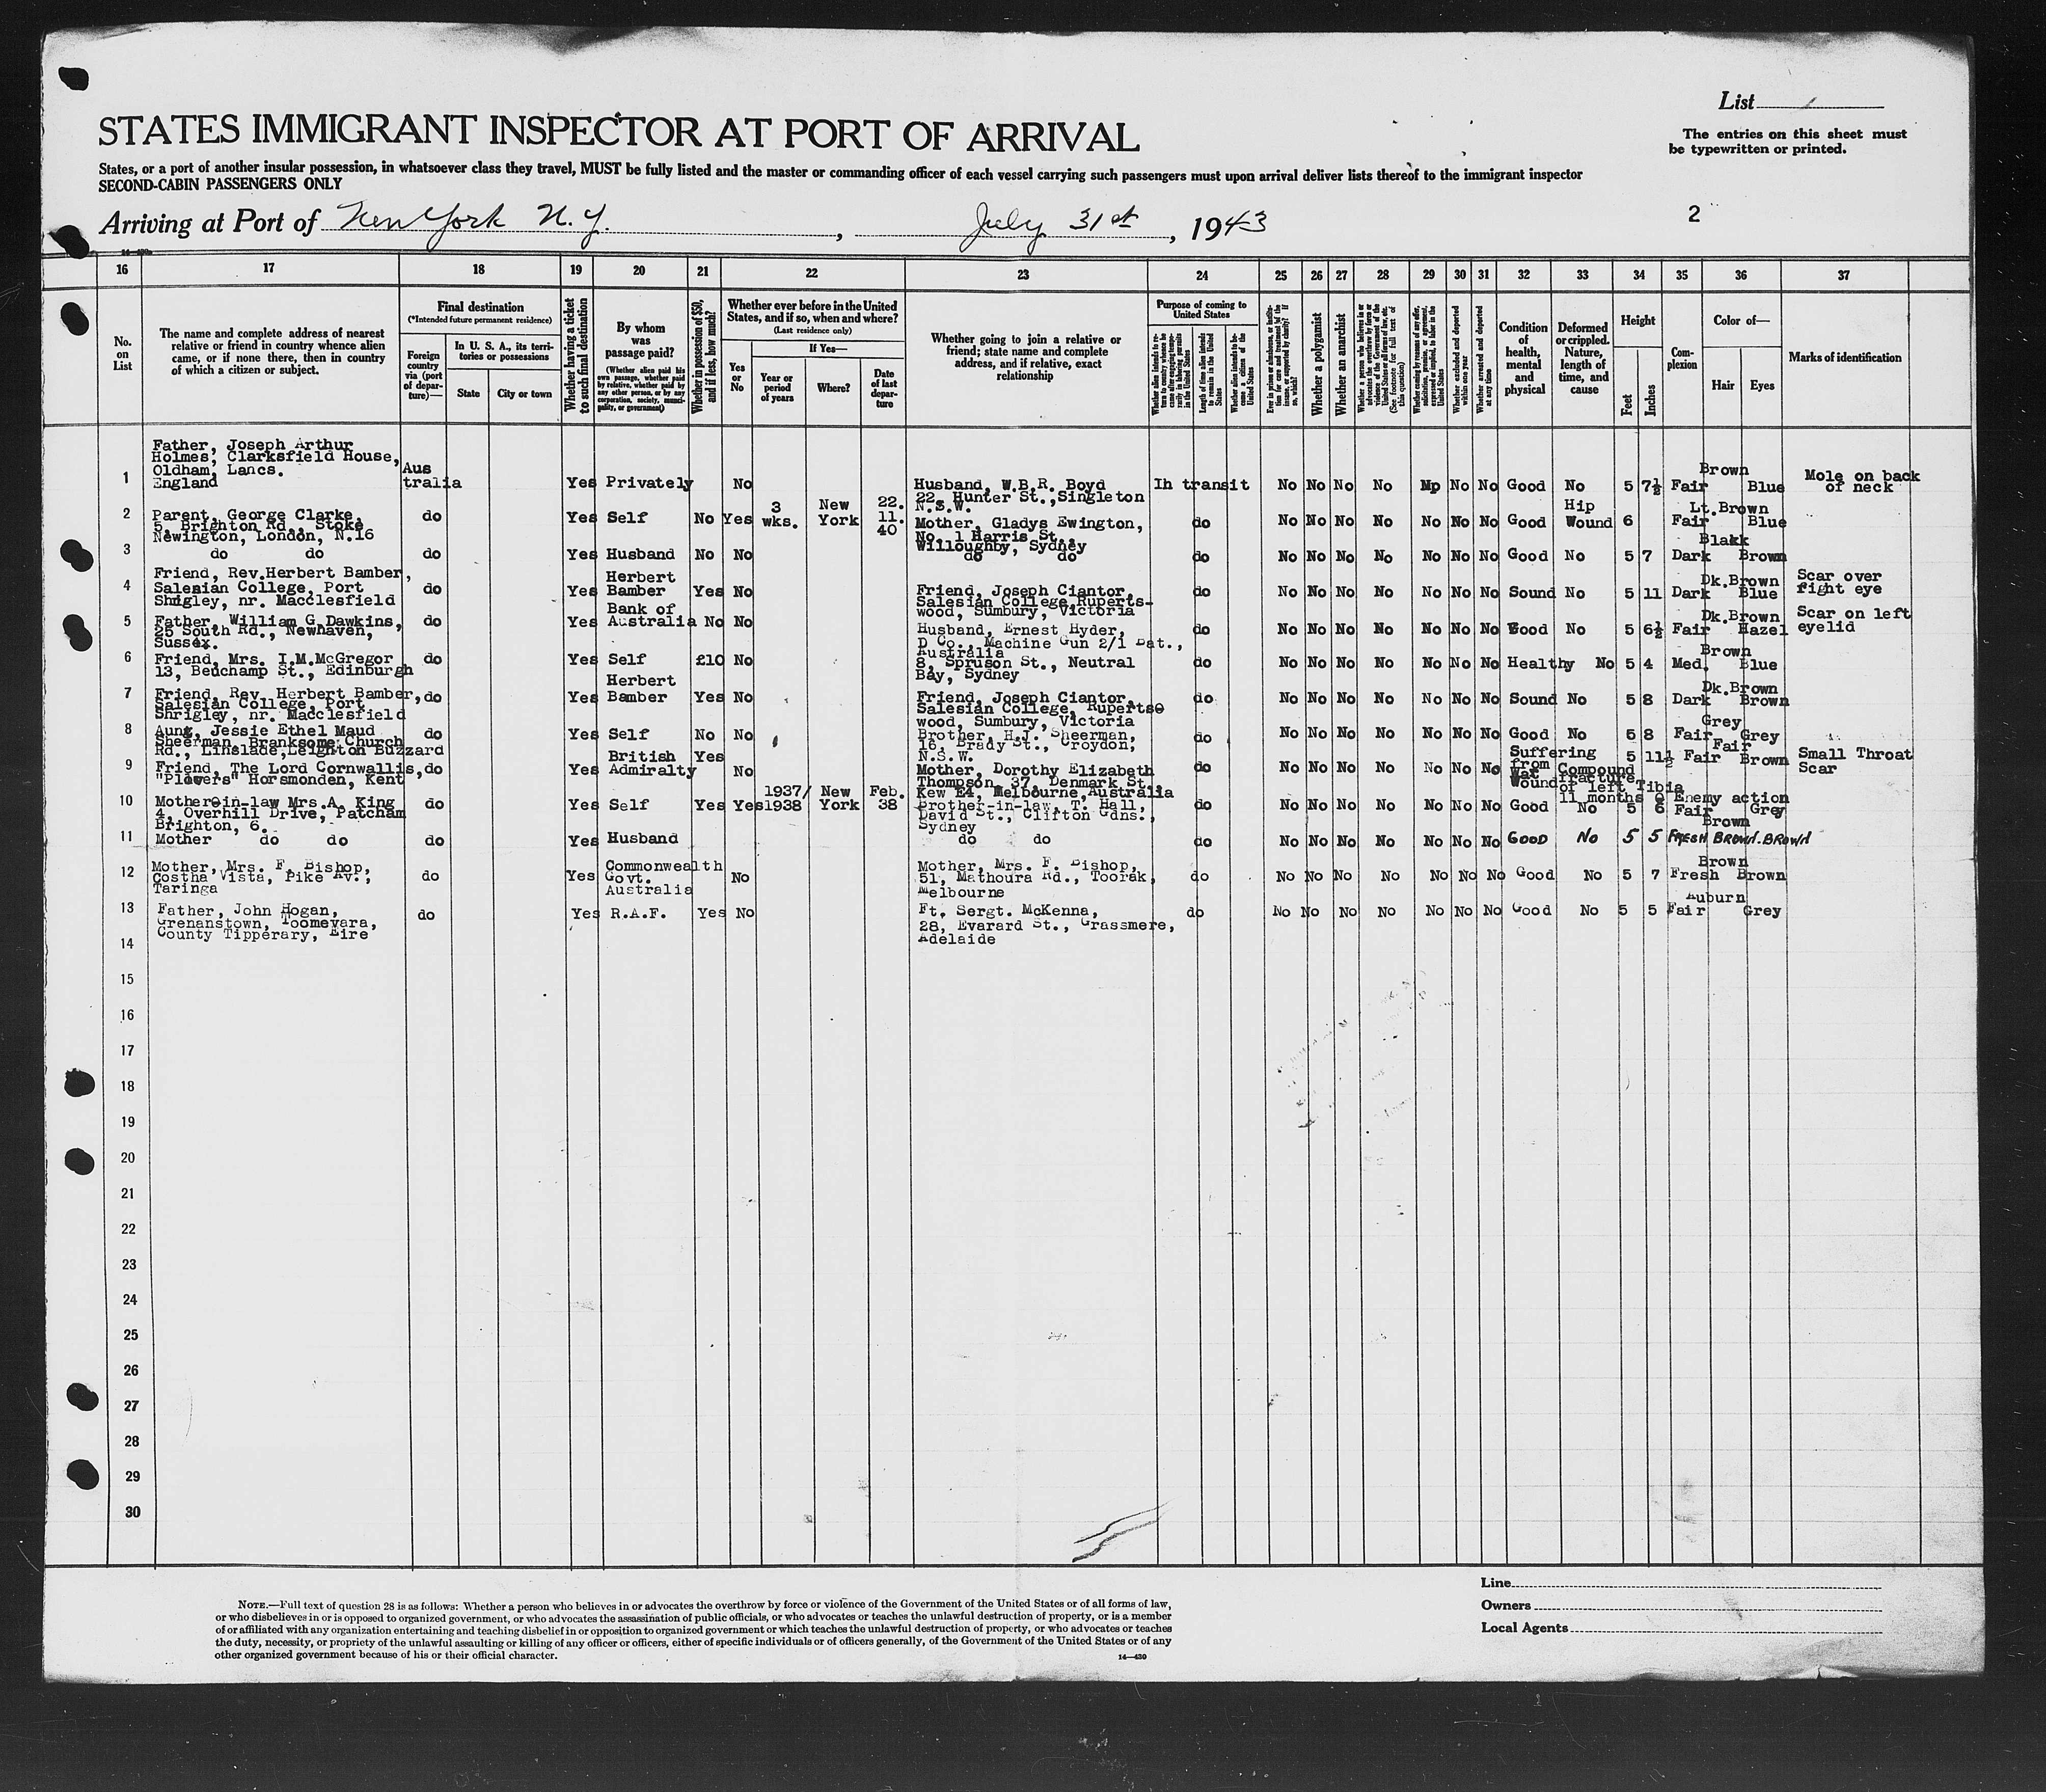 List 1
STATES IMMIGRANT INSPECTOR AT PORT OF ARRIVAL
The entries on this sheet must
be typewritten or printed.
States, or a port of another insular possession, in whatsoever class they travel, MUST be fully listed and the master or commanding officer of each vessel carrying such passengers must upon arrival deliver lists thereof to the immigrant inspector
SECOND-CABIN PASSENGERS ONLY
Arriving at Port of New York N.Y. , July 31st , 1943
2
16 17 18 19 20 21 22 23 24 25 26 27 28 29 30 31 32 33 34 35 36 37
No. on List
The name and complete address of nearest relative or friend in country whence alien came, or if none there, then in country of which a citizen or subject.
Final destination
(*Intended future permanent residence)
Foreign country via (port of departure)—
In U. S. A., its territories or possessions
State
City or town
Whether having a ticket to such final destination
By whom was passage paid?
(Whether alien paid his own passage, whether paid by relative, whether paid by any other person, or by any corporation, society, municipality, or government)
Whether in possession of $50, and if less, how much?
Whether ever before in the United States, and if so, when and where?
(Last residence only)
Yes or No
If Yes—
Year or period of years
Where?
Date of last departure
Whether going to join a relative or friend; state name and complete address, and if relative, exact relationship
Purpose of coming to United States
Length of time alien intends to remain in the United States
Whether alien intends to become a citizen of the United States
Whether a polygamist
Whether an anarchist
Whether excluded and deported within one year
Whether arrested and deported at any time
Condition of health, mental and physical
Deformed or crippled. Nature, length of time, and cause
Height
Feet
Inches
Complexion
Color of—
Hair
Eyes
Marks of identification
1 Father, Joseph Arthur Holmes, Clarksfield House, Oldham, Lancs. England Aus tralia Yes Privately No Husband, W.B.R. Boyd 22, Hunter St., Singleton N.S.W. In transit No No No No No No No Good No 5 7½ Fair Brown Blue Mole on back of neck
2 Parent, George Clarke, 5, Brighton Rd., Stoke Newington, London, N.16 do Yes Self No Yes 3 wks. New York 22. 11. 40 Mother, Gladys Ewington, No. 1 Harris St., Willoughby, Sydney do No No No No No No No Good Hip Wound 6 Fair Lt.Brown Blue
3 do do do Yes Husband No No do do do No No No No No No No Good No 5 7 Dark Blakk Brown
4 Friend, Rev.Herbert Bamber, Salesian College, Port Shrigley, nr. Macclesfield do Yes Herbert Bamber Yes No Friend, Joseph Ciantor, Salesian College,Ruperts- wood, Sumbury, Victoria do No No No No No No No Sound No 5 11 Dark Dk.Brown Blue Scar over right eye
5 Father, William G.Dawkins, 25 South Rd., Newhaven, Sussex. do Yes Bank of Australia No No Husband, Ernest Hyder, D Co., Machine Gun 2/1 Bat., Australia do No No No No No No No Good No 5 6½ Fair Dk.Brown Hazel Scar on left eyelid
6 Friend, Mrs. I.M.McGregor 13, Beuchamp St., Edinburgh do Yes Self £10 No 8, Spruson St., Neutral Bay, Sydney do No No No No No No No Healthy No 5 4 Med. Brown Blue
7 Friend, Rev. Herbert Bamber, Salesian College, Port Shrigley, nr. Macclesfield do Yes Herbert Bamber Yes No Friend, Joseph Ciantor, Salesian College, Ruperts wood, Sumbury, Victoria do No No No No No No No Sound No 5 8 Dark Dk.Brown Brown
8 Aunt, Jessie Ethel Maud Sheerman, Branksome Church Rd., Linslade,Leighton Buzzard do Yes Self No No Brother, H.J. Sheerman, 16, Brady St., Croydon, N.S.W. do No No No No No No No Good No 5 8 Fair Grey Grey
9 Friend, The Lord Cornwallis, "Plovers" Horsmonden, Kent do Yes British Admiralty Yes No Mother, Dorothy Elizabeth Thompson, 37, Denmark St., Kew E4, Melbourne, Australia do No No No No No No No Suffering from War Wound Compound fracture of left Tibia 11 months Enemy action 5 11½ Fair Fair Brown Small Throat Scar
10 Mother-in-law Mrs.A. King 4, Overhill Drive, Patcham Brighton, 6. do Yes Self Yes Yes 1937/1938 New York Feb. 38 Brother-in-law, T. Hall, David St., Clifton Gdns., Sydney do No No No No No No No Good No 5 6 Fair Grey
11 Mother do do do Yes Husband do do do No No No No No No No GOOD NO 5 5 FRESH BROWN. BROWN Brown
12 Mother, Mrs. F. Bishop, Costha Vista, Pike Av., Taringa do Yes Commonwealth Govt. Australia No Mother, Mrs. F. Bishop, 51, Mathoura Rd., Toorak, Melbourne do No No No No No No No Good No 5 7 Fresh Brown Brown
13 Father, John Hogan, Grenanstown, Toomevara, County Tipperary, Eire do Yes R.A.F. Yes No Ft. Sergt. McKenna, 28, Evarard St., Grassmere, Adelaide do No No No No No No No Good No 5 5 Fair Auburn Grey
14
15
16
17
18
19
20
21
22
23
24
25
26
27
28
29
30
NOTE.—Full text of question 28 is as follows: Whether a person who believes in or advocates the overthrow by force or violence of the Government of the United States or of all forms of law,
or who disbelieves in or is opposed to organized government, or who advocates the assassination of public officials, or who advocates or teaches the unlawful destruction of property, or is a member
of or affiliated with any organization entertaining and teaching disbelief in or opposition to organized government or which teaches the unlawful destruction of property, or who advocates or teaches
the duty, necessity, or propriety of the unlawful assaulting or killing of any officer or officers, either of specific individuals or of officers generally, of the Government of the United States or of any
other organized government because of his or their official character.
14—430
Line
Owners
Local Agents